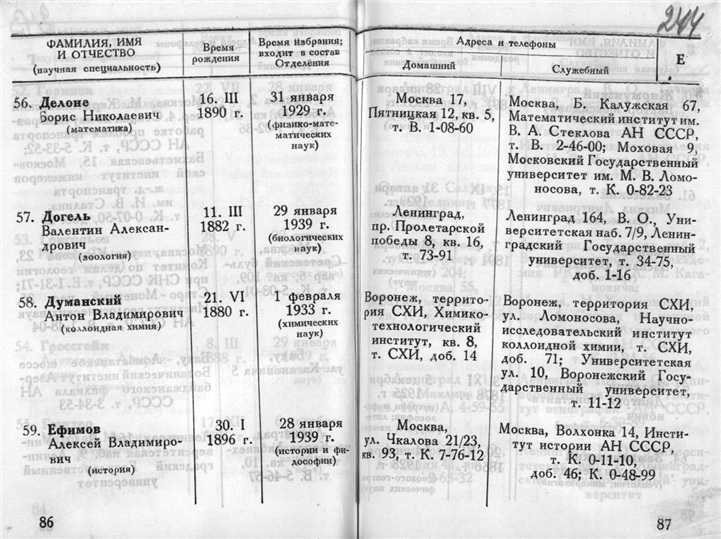 244
ФАМИЛИЯ, ИМЯ
И ОТЧЕСТВО
(научная специальность)
Время
рождения
Время избрания;
входит в состав
Отделения
Адреса и телефоны
Домашний
Служебный
Е
56. Делоне
Борис Николаевич
(математика)
16. III
1890 г.
31 января
1929 г.
(физико-мате-
матических
наук)
Москва 17,
Пятницкая 12, кв. 5,
т. В 1-08-60
Москва, Б. Калужская 67,
Математический институт им.
В. А. Стеклова АН СССР,
т. В. 2-46-00; Моховая 9,
Московский Государственный
университет им. М. В. Ломо-
носова, т. К 0-82-23
57. Догель
Валентин Алексан-
дрович
(зоология)
11. III
1882 г.
29 января
1939 г.
(биологических
наук)
Ленинград,
пр. Пролетарской
победы 8, кв. 16,
т. 73-91
Ленинград 164, В. О., Уни-
верситетская наб. 7/9, Ленин-
градский Государственный
университет, т. 34-75,
доб. 1-16
58. Думанский
Антон Владимирович
(коллоидная химия)
21. VI
1880 г.
1 февраля
1933 г.
(химических
наук)
Воронеж, террито-
рия СХИ, Химико-
технологический
институт, кв. 8,
т. СХИ, доб. 14
Воронеж, территория СХИ,
ул. Ломоносова, Научно-
исследовательский институт
коллоидной химии, т. СХИ,
доб. 71; Университетская
ул. 10, Воронежский Госу-
дарственный университет,
т. 11-12
59. Ефимов
Алексей Владимиро-
вич
(история)
30. I
1896 г.
28 января
1939 г.
(истории и фи-
лософии)
Москва,
ул. Чкалова 21/23,
кв. 93, т. К 7-76-12
Москва, Волхонка 14, Инсти-
тут истории АН СССР,
т. К. 0-11-10,
доб. 46; К. 0-48-99
86
87